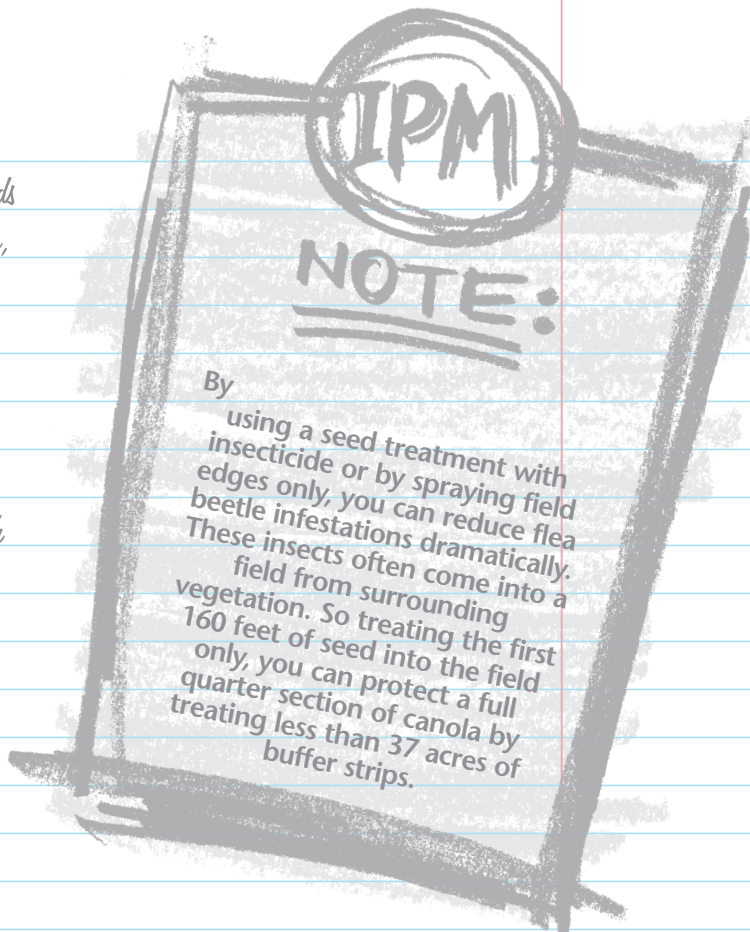 IPM
NOTE:
ds
By
using a seed treatment with
insecticide or by spraying field
edges only, you can reduce flea
beetle infestations dramatically.
These insects often come into a
field from surrounding
vegetation. So treating the first
160 feet of seed into the field
only, you can protect a full
quarter section of canola by
treating less than 37 acres of
buffer strips.